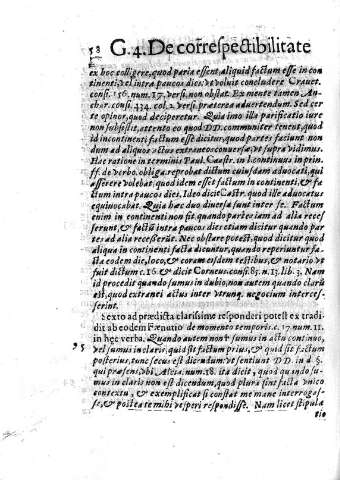 58 G. 4. De correspectibilitate
ex hoc colligere, quod paria essent, aliquid factum esse in con
tinenti, vel intra paucos dies, vt voluit concludere Crauet.
consi. 156. num. 17. versi. non obstat. Ex mente tamen An-
chor. consi. 434. col. 2. versi. præterea aduertendum. Sed cer
te opinor, quod deciperetur. Quia imo illa parificatio iure
non subsistit, attento eo quod DD. communiter tenent, quod
id incontinenti factum esse dicitur, quod partes faciunt non
dum ad alios actus extraneos conuersæ, vt supra vidimus.
Hac ratione in terminis Paul. Castr. in l. continuus in prin.
ff. de verbo. obliga. reprobat dictum cuiusdam aduocati, qui
asserere volebat quod idem esset factum in continenti, & fa
ctum intra paucos dies. Ideo dicit Castr. quod ille aduocatus
equiuocabat. Quia hæc duo diuersa sunt inter se. Factum
enim in continenti non fit quando partes iam ad alia reces
serunt, & factũ intra paucos dies etiam dicitur quando par
tes ad alia recesserũt. Nec obstare potest, quod dicitur quod
aliqua in continenti facta dicuntur, quando reperiuntur fa-
cta eodem die, loco, & coram eisdem testibus, & notario vt
fuit dictum c. 16. & dicit Corneus consi. 89. n. 13. lib. 3. Nam
id procedit quando sumus in dubio, non autem quando clarũ
est, quod extranei actus inter vtrunq. negocium interces-
serint.
Sexto ad prædicta clarissime responderi potest ex tradi
dit ab eodem Fœnutio de momento temporis. c. 17. num. 11.
in hęc verba. Quando autem nõ sumus in actu continuo,
95 vel sumus in claris, quid sit factum prius, & quid sit factum
posterius, tunc secus est dicendum, vt sentiunt DD. in d. §.
qui præsens, vbi Areta. num. 18. ita dicit, quod quando su-
mus in claris non est dicendum, quod plura sint facta vnico
contextu, & exemplificat si constat me mane interrogas-
se, & postea te mihi vesperi respondisse. Nam licet stipula
tio